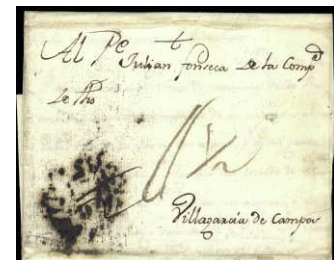 Al Pe Julian fonseca de la Compª
de Jhs
1/2
Villagarcia de Campos